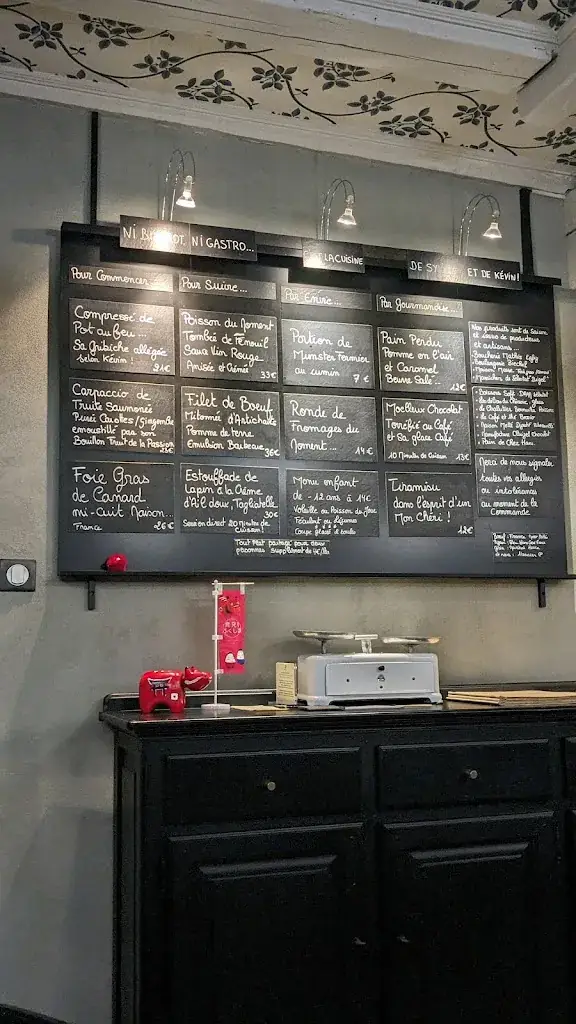 NI BISTROT, NI GASTRO...
LA CUISINE
DE SY ET DE KÉVIN!
Pour Commencer...
Compressé de
Pot au feu...
Sa Gribiche allégée
selon Kévin!
21€
Carpaccio de
Truite Saumonée
Purée Carottes/Gingembre
émoustillé par son
Bouillon Fruit de la Passion
Foie Gras
de Canard
mi-cuit Maison...
France
26€
Pour Suivre...
Poisson du Moment
Tombée de Fenouil
Sauce Vin Rouge
Anisée et Crémée
33€
Filet de Boeuf
Mitonnée d'Artichauts
Pomme de terre
Emulsion Barbecue
36€
Estouffade de
Lapin à la Crème
d'Ail doux, Tagliatelle
30€
Service direct 20 minutes de
Cuisson!
Par Envie...
Portion de
Munster Fermier
au cumin
7€
Ronde de
Fromages du
Moment...
14€
Menu enfant
de -12 ans à 14€
Volaille ou Poisson du Jour
Féculent ou Légumes
Coupe glacée et coulis
Par Gourmandise...
Pain Perdu
Pomme en l'air
et Caramel
Beurre Salé...
12€
Moelleux Chocolat
Torréfié au Café
et Sa glace Café
10 Minutes de Cuisson
13€
Tiramisu
dans l'esprit d'un
Mon Chéri!
12€
Nos produits sont de Saison
et issus de producteurs
et artisans
Merci de nous signaler
toutes vos allergies
ou intolérances
au moment de la
Commande
Tout Plat partagé pour deux
personnes Supplément de 4€